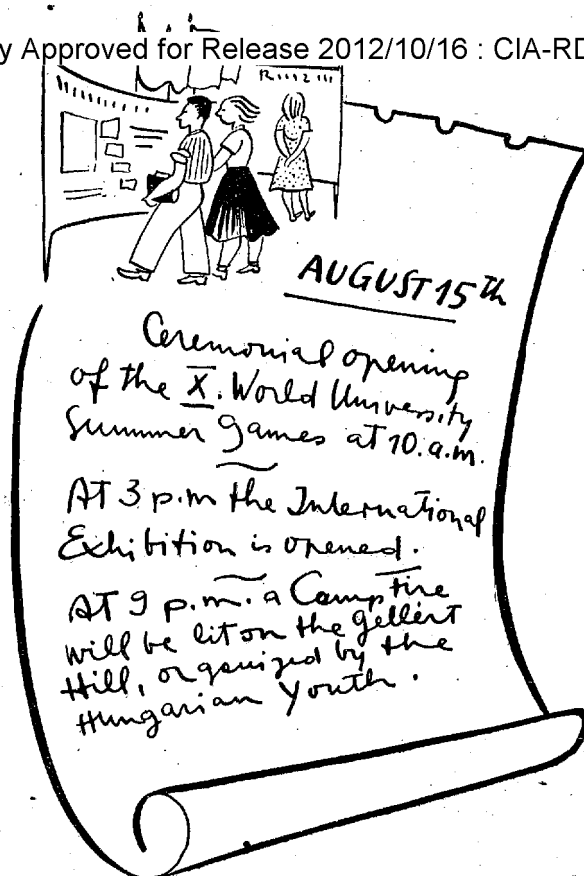 y Approved for Release 2012/10/16 : CIA-RD
AUGUST 15th
Ceremonial opening
of the X. World University
Summer Games at 10.a.m.
At 3 p.m the International
Exhibition is opened.
At 9 p.m. a Campfire
will be lit on the Gellért
Hill, organized by the
Hungarian Youth.